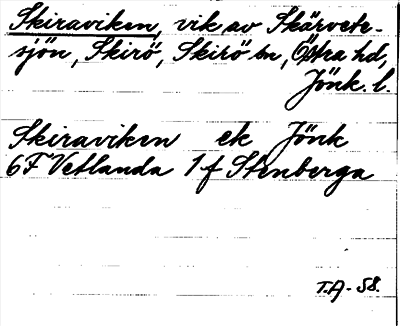 Skiraviken, vik av Skärvete-
sjön, Skirö, Skirö sn, Östra hd,
Jönk. l.
Skiraviken ek Jönk
6F Vetlanda 1f Stenberga
T.A - 58.